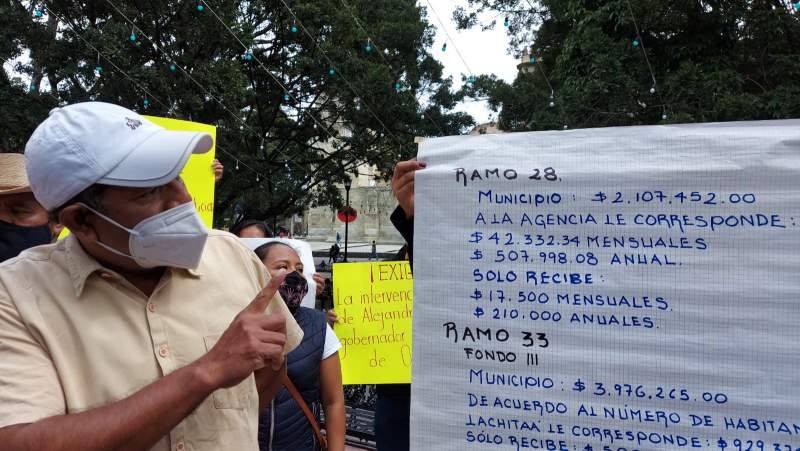 RAMO 28.
MUNICIPIO: $ 2.107,452.00
A LA AGENCIA LE CORRESPONDE:
$ 42.332.34 MENSUALES
$ 507,998.08 ANUAL.
SOLO RECIBE:
$ 17.500 MENSUALES.
$ 210.000 ANUALES.
RAMO 33
FONDO III
MUNICIPIO: $ 3,976,265.00
DE ACUERDO AL NÚMERO DE
LACHITAÁ LE CORRESPONDE: $
SÓLO RECIBE: $
¡ EXI
La interven
de Alejand
gobernador
de O